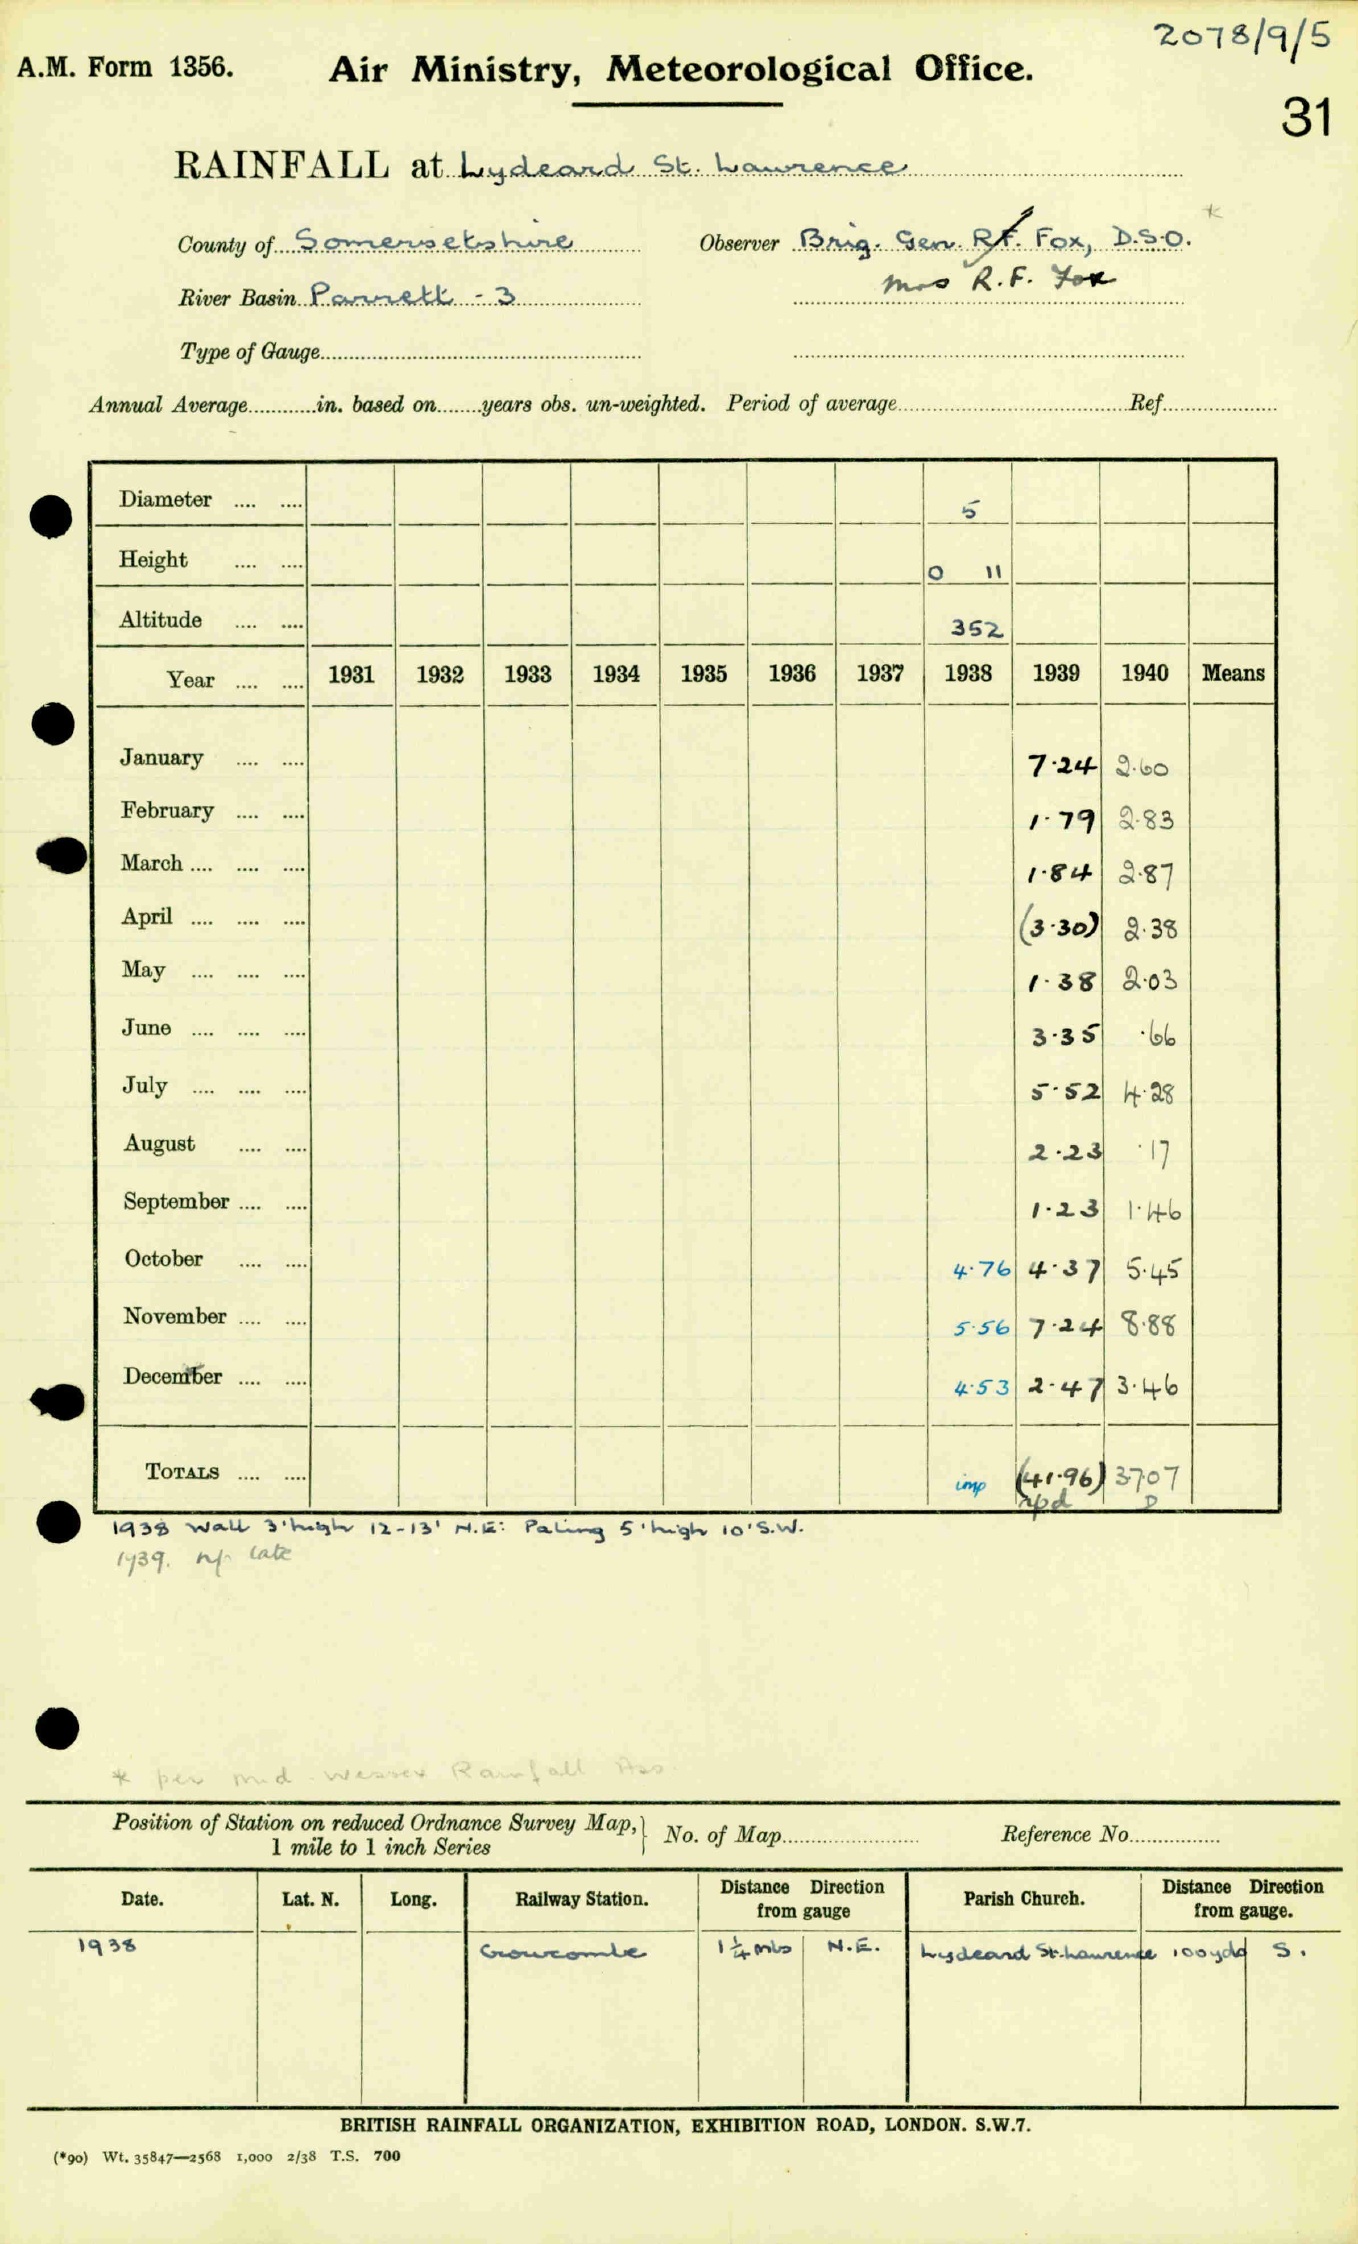 2078/9/5
A.M. Form 1356. Air Ministry, Meteorological Office.
31
RAINFALL at Lydeard St. Lawrence
*
County of Somersetshire Observer Brig. Gen. R.F. Fox, D.S.O.
River Basin Parrett - 3 Mrs R.F. Fox
Type of Gauge
Annual Average in. based on years obs. un-weighted. Period of average Ref.
Diameter .... .... 5
Height .... .... 0 11
Altitude .... .... 352
Year .... .... 1931 1932 1933 1934 1935 1936 1937 1938 1939 1940 Means
January .... .... 7·24 2·60
February .... .... 1·79 2·83
March .... .... .... 1·84 2·87
April .... .... .... (3·30) 2·38
May .... .... .... 1·38 2·03
June .... .... .... 3·35 ·66
July .... .... .... 5·52 4·28
August .... .... 2·23 ·17
September .... .... 1·23 1·46
October .... .... 4·76 4·37 5·45
November .... .... 5·56 7·24 8·88
December .... .... 4·53 2·47 3·46
TOTALS .... .... imp (41·96) 37·07
1938 Wall 3' high 12-13' N.E: Paling 5' high 10' S.W.
1939. late
* per Mid-Wessex Rainfall Ass.
Position of Station on reduced Ordnance Survey Map,
1 mile to 1 inch Series } No. of Map Reference No.
Date. Lat. N. Long. Railway Station. Distance Direction from gauge Parish Church. Distance Direction from gauge.
1938 Crowcombe 1¼ mls N.E. Lydeard St. Lawrence 100yds S.
BRITISH RAINFALL ORGANIZATION, EXHIBITION ROAD, LONDON. S.W.7.
(*90) Wt. 35847—2568 1,000 2/38 T.S. 700